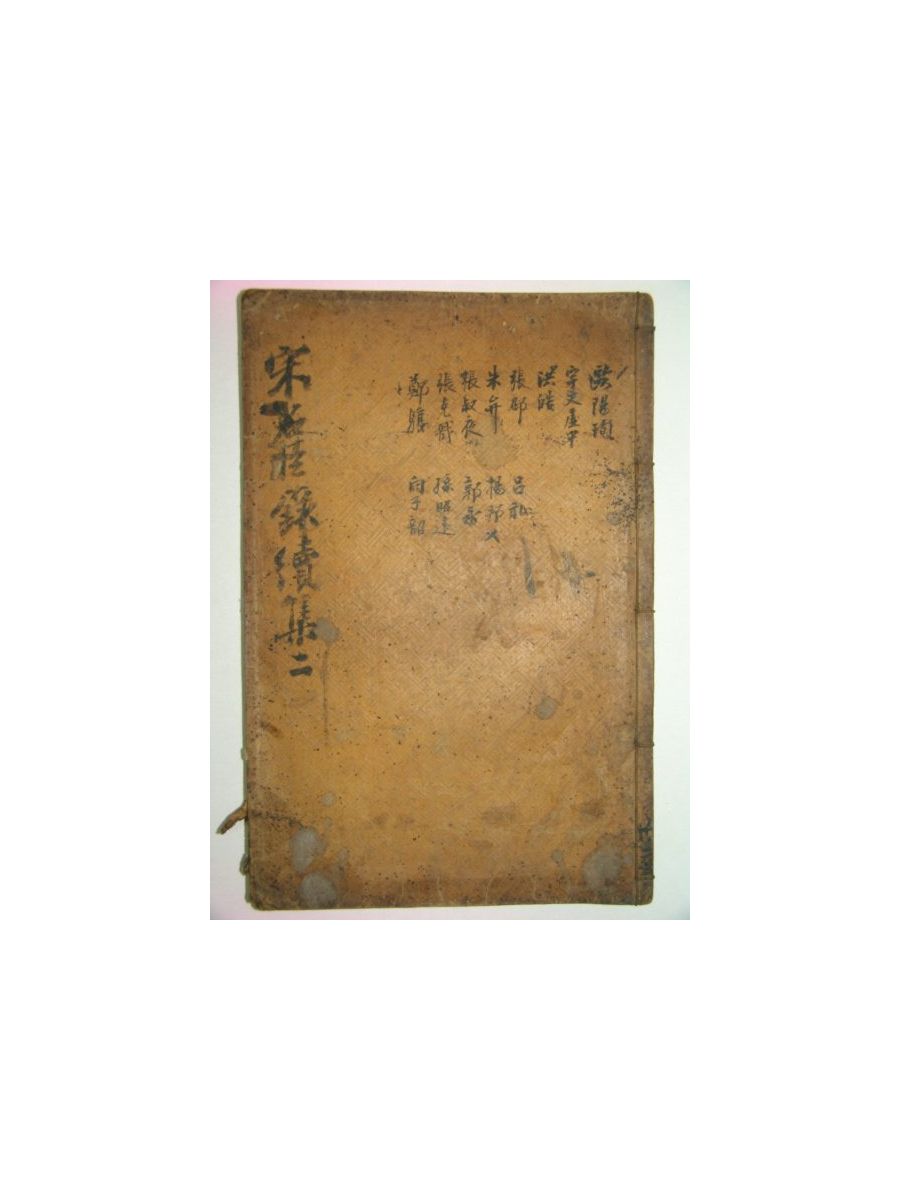 歐陽珣
宇文虛中
洪皓
張邵 呂祉
朱弁 楊邦乂
張叔夜 郭永
張克戩 孫昭遠
鄭驤 向子韶
宋名臣錄續集二